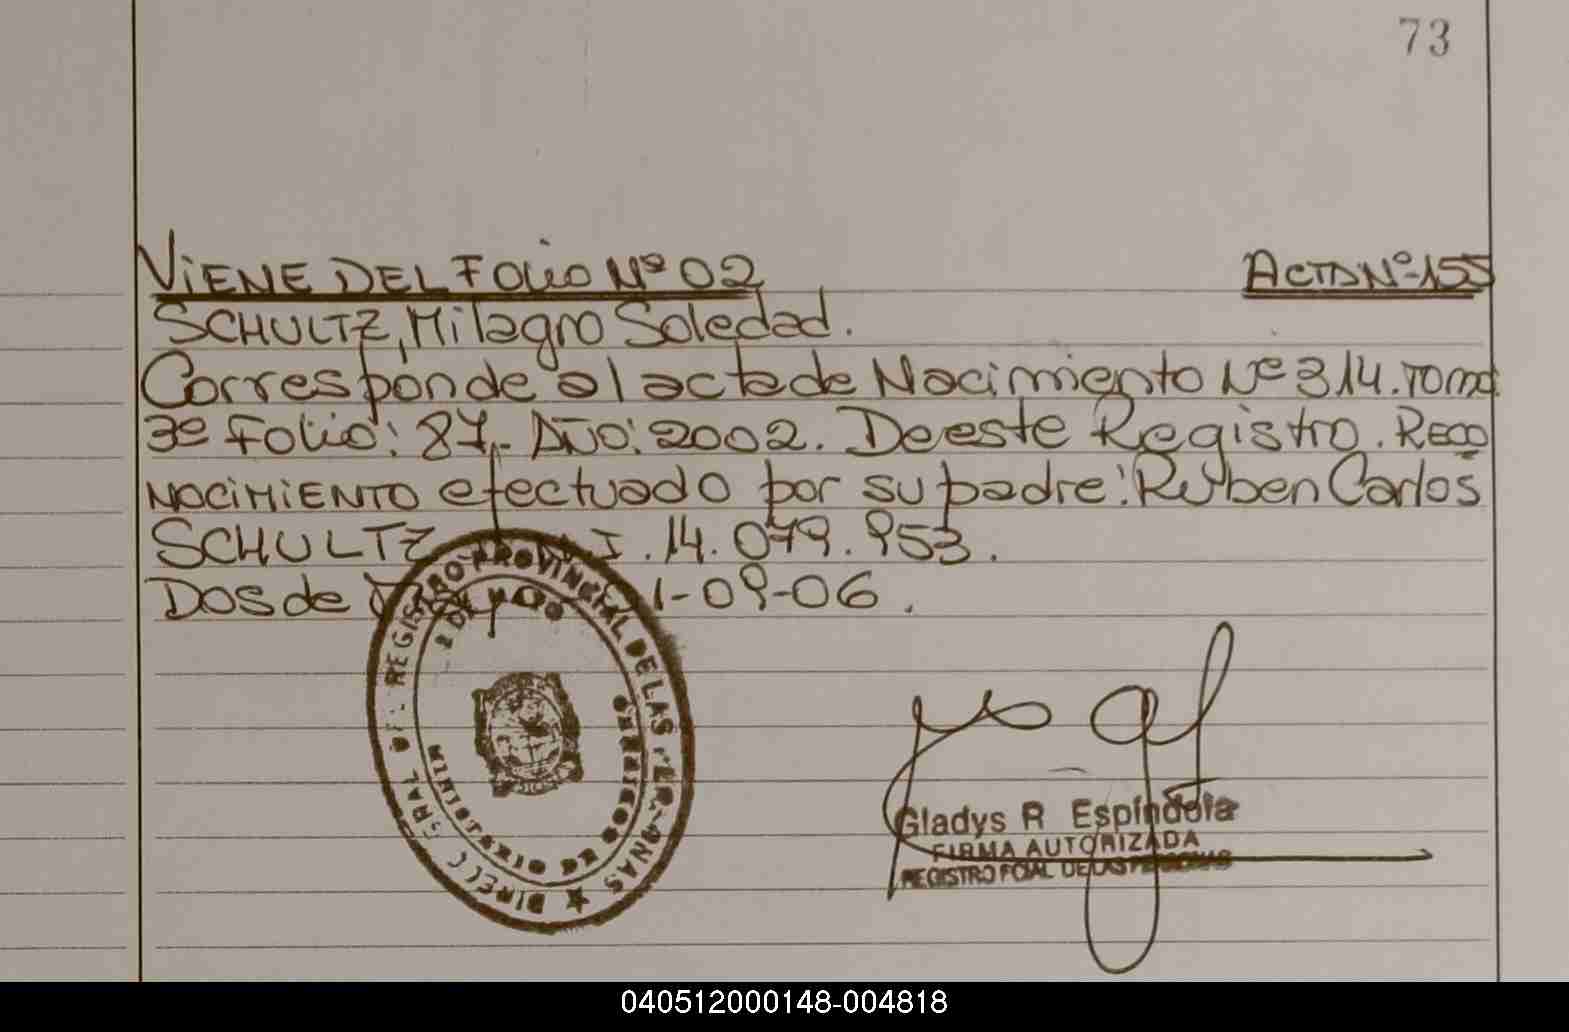 73
VIENE DEL Folio Nº 02 ACTA Nº-155
SCHULTZ, Milagro Soledad.
Corresponde al acta de Nacimiento Nº 314. TOMO
3º Folio: 87.- AÑO: 2002. De este Registro. RECO
NOCIMIENTO efectuado por su padre: Ruben Carlos
SCHULTZ I. 14.079.953.
Dos de 1-09-06.
REGISTRO PROVINCIAL DE LAS
2 DE MAYO
Gladys R Espíndola
FIRMA AUTORIZADA
REGISTRO PCIAL DE LAS PERSONAS
040512000148-004818